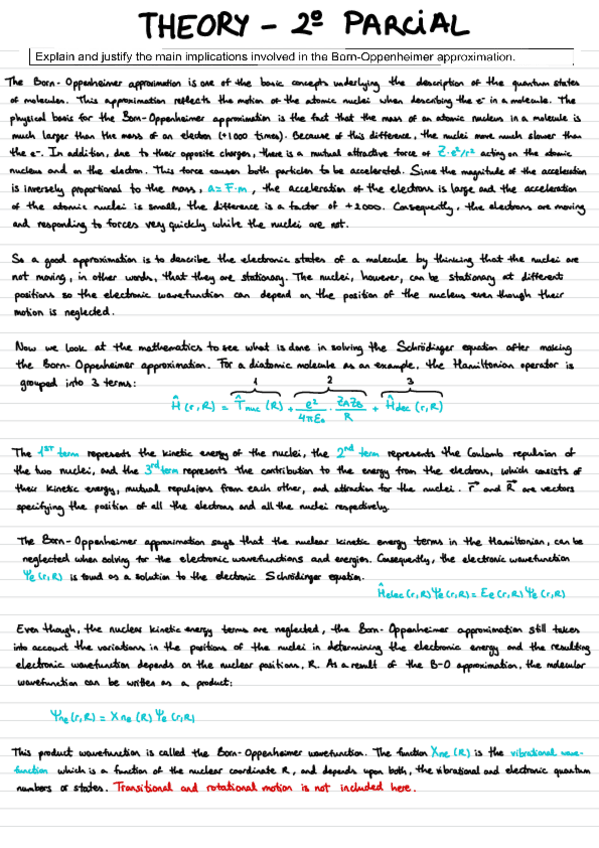 THEORY - 2º PARCIAL
Explain and justify the main implications involved in the Born-Oppenheimer approximation.
The Born-Oppenheimer approximation is one of the basic concepts underlying the description of the quantum states
of molecules. This approximation reflects the motion of the atomic nuclei when describing the e- in a molecule. The
physical basis for the Born-Oppenheimer approximation is the fact that the mass of an atomic nucleus in a molecule is
much larger than the mass of an electron (+1000 times). Because of this difference, the nuclei move much slower than
the e-. In addition, due to their opposite charges, there is a mutual attractive force of Z·e²/r² acting on the atomic
nucleus and on the electron. This force causes both particles to be accelerated. Since the magnitude of the acceleration
is inversely proportional to the mass, a=F·m, the acceleration of the electrons is large and the acceleration
of the atomic nuclei is small, the difference is a factor of +2000. Consequently, the electrons are moving
and responding to forces very quickly while the nuclei are not.
So a good approximation is to describe the electronic states of a molecule by thinking that the nuclei are
not moving, in other words, that they are stationary. The nuclei, however, can be stationary at different
positions so the electronic wavefunction can depend on the position of the nucleus even though their
motion is neglected.
Now we look at the mathematics to see what is done in solving the Schrödinger equation after making
the Born-Oppenheimer approximation. For a diatomic molecule as an example, the Hamiltonian operator is
grouped into 3 terms: 1 2 3
Ĥ (r,R) = T̂nuc (R) + e²/4πE₀ · ZAZB/R + Ĥelec (r,R)
The 1ST term represents the kinetic energy of the nuclei, the 2nd term represents the Coulomb repulsion of
the two nuclei, and the 3rd term represents the contribution to the energy from the electrons, which consists of
their kinetic energy, mutual repulsion from each other, and attraction for the nuclei. r⃗ and R⃗ are vectors
specifying the position of all the electrons and all the nuclei respectively.
The Born-Oppenheimer approximation says that the nuclear kinetic energy terms in the Hamiltonian, can be
neglected when solving for the electronic wavefunctions and energies. Consequently, the electronic wavefunction
Ψe (r,R) is found as a solution to the electronic Schrödinger equation.
Ĥelec (r,R) Ψe (r,R) = Ee (r,R) Ψe (r,R)
Even though, the nuclear kinetic energy terms are neglected, the Born-Oppenheimer approximation still takes
into account the variations in the positions of the nuclei in determining the electronic energy and the resulting
electronic wavefunction depends on the nuclear positions, R. As a result of the B-O approximation, the molecular
wavefunction can be written as a product:
Ψne (r,R) = Xne (R) Ψe (r,R)
This product wavefunction is called the Born-Oppenheimer wavefunction. The function Xne (R) is the vibrational wave-
function which is a function of the nuclear coordinate R, and depends upon both, the vibrational and electronic quantum
numbers or states. Transitional and rotational motion is not included here.